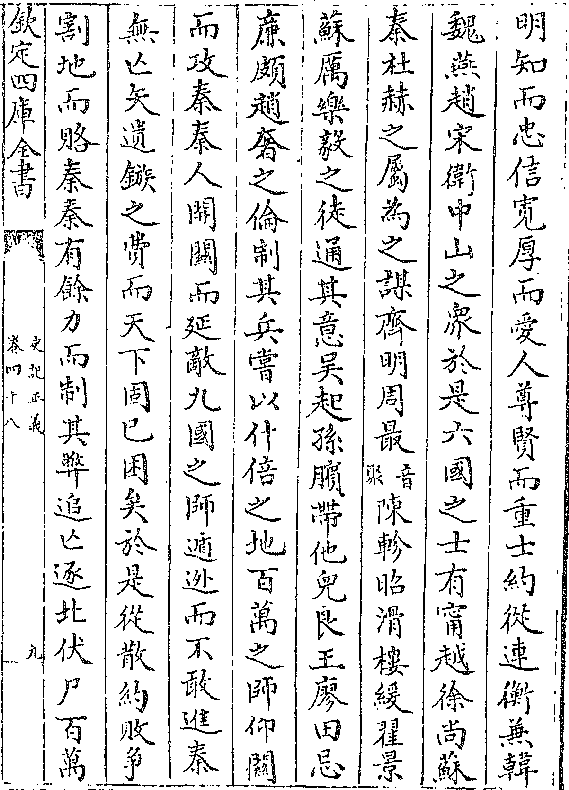 明知而忠信寛厚而愛人尊賢而重士約從連衡兼韓
魏燕趙宋衛中山之衆於是六國之士有甯越徐尚蘇
秦杜赫之屬為之謀齊明周最音聚陳軫昭滑樓緩翟景
蘇厲樂毅之徒通其意吴起孫臏帶他兒良王廖田忌
廉頗趙奢之倫制其兵嘗以什倍之地百萬之師仰關
而攻秦秦人開關而延敵九國之師遁逃而不敢進秦
無亡矢遺鏃之費而天下固已困矣於是從散約敗爭
割地而賂秦秦有餘力而制其弊追亡逐北伏尸百萬
欽定四庫全書
史記正義
卷四十八
九